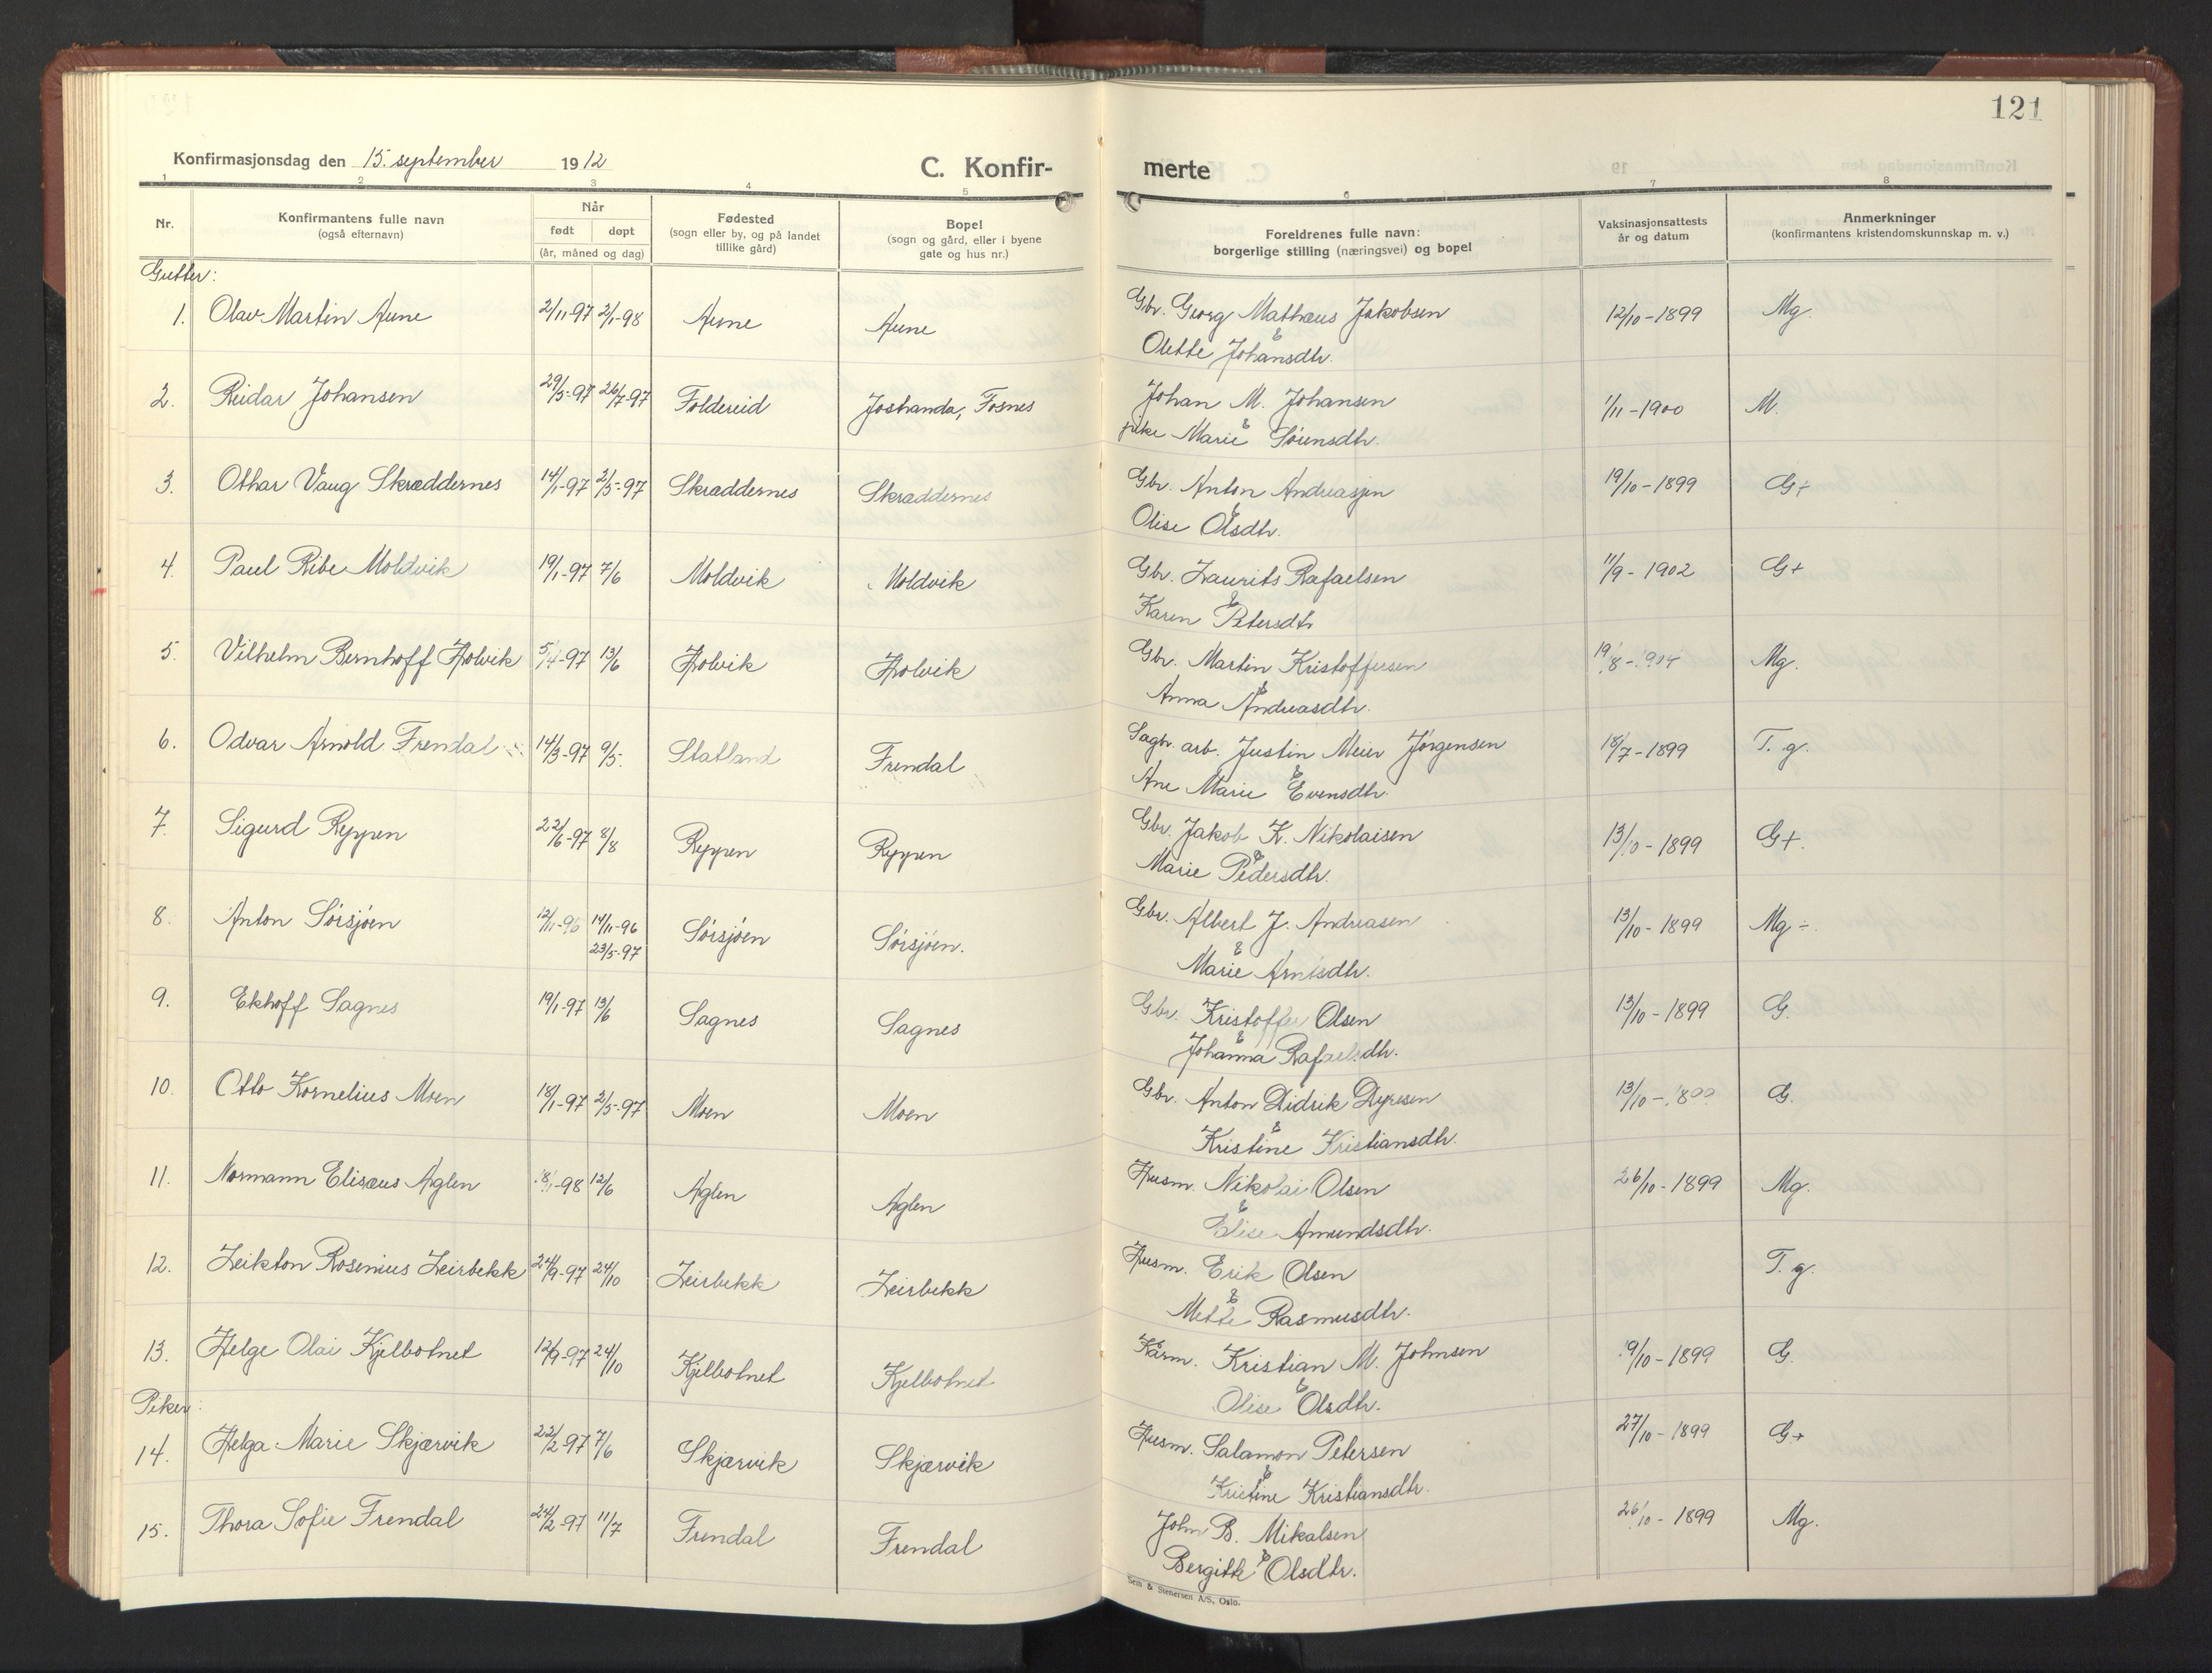 121
Konfirmasjonsdag den 15. september 1912
C. Konfir-
merte
1 2 3 4 5 6 7 8
Nr.
Konfirmantens fulle navn
(også efternavn)
Når
født døpt
(år, måned og dag)
Fødested
(sogn eller by, og på landet
tillike gård)
Bopel
(sogn og gård, eller i byene
gate og hus nr.)
Foreldrenes fulle navn:
borgerlige stilling (næringsvei) og bopel
Vaksinasjonsattests
år og datum
Anmerkninger
(konfirmantens kristendomskunnskap m. v.)
Gutter:
1. Olav Martin Aune 2/11-97 2/1-98 Aune Aune Gbr. Georg Mathæus Jakobsen 12/10-1899 Mg.
& Olette Johansdtr.
2. Reidar Johansen 29/5-97 26/7-97 Foldereid Jøshanda, Fosnes Johan M. Johansen 1/11-1900 M.
pike Marie & Sørensdtr.
3. Othar Vaug Skræddernes 14/1-97 2/5-97 Skræddernes Skræddernes Gbr. Anton Andreasen 19/10-1899 G+
& Olise Olsdtr.
4. Paul Ribe Moldvik 19/1-97 7/6 Moldvik Moldvik Gbr. Laurits Rafaelsen 11/9-1902 G+
& Karen Petersdtr
5. Vilhelm Bernhoff Holvik 5/4-97 13/6 Holvik Holvik Gbr. Martin Kristoffersen 19/8-1904 Mg.
& Anna Andreasdtr.
6. Odvar Arnold Frendal 14/3-97 9/5. Statland Frendal Sagbr. arb. Justin Meier Jørgensen 18/7-1899 T. g.
Ane Marie & Evensdtr.
7. Sigurd Ryppen 22/6-97 8/8 Ryppen Ryppen Gbr. Jakob K. Nikolaisen 13/10-1899 G+.
Marie & Pedersdtr.
8. Anton Sørsjøen 12/11-96 14/11-96 Sørsjøen Sørsjøen. Gbr. Albert J. Andreasen 13/10-1899 Mg÷.
23/5-97
& Marie Arntsdtr.
9. Ekhoff Sagnes 19/1-97 13/6 Sagnes Sagnes Gbr. Kristoffer Olsen 13/10-1899 G.
& Johanna Rafaelsdtr.
10. Otto Kornelius Moen 18/1-97 2/5-97 Moen Moen Gbr. Anton Didrik Dyresen 13/10-1899 G.
& Kristine Kristiansdtr.
11. Normann Elisæus Aglen 18/1-98 12/6 Aglen Aglen Husm. Nikolai Olsen 26/10-1899 Mg.
& Elise Amundsdtr.
12. Leikton Rosenius Leirbekk 24/9-97 24/10 Leirbekk Leirbekk Husm. Erik Olsen T. g.
& Mette Rasmusdtr.
13. Helge Olai Kjelbotnet 12/9-97 24/10 Kjelbotnet Kjelbotnet Kårm. Kristian M. Johnsen 19/10-1899 G.
& Olise Olsdtr.
Piker:
14. Helga Marie Skjærvik 22/2-97 7/6 Skjærvik Skjærvik Husm. Salamon Petersen 27/10-1899 G+
& Kristine Kristiansdtr.
15. Thora Sofie Frendal 24/2-97 11/7 Frendal Frendal John B. Mikalsen 26/10-1899 Mg.
Bergitte & Olsdtr.
Sem & Stenersen A/S, Oslo.